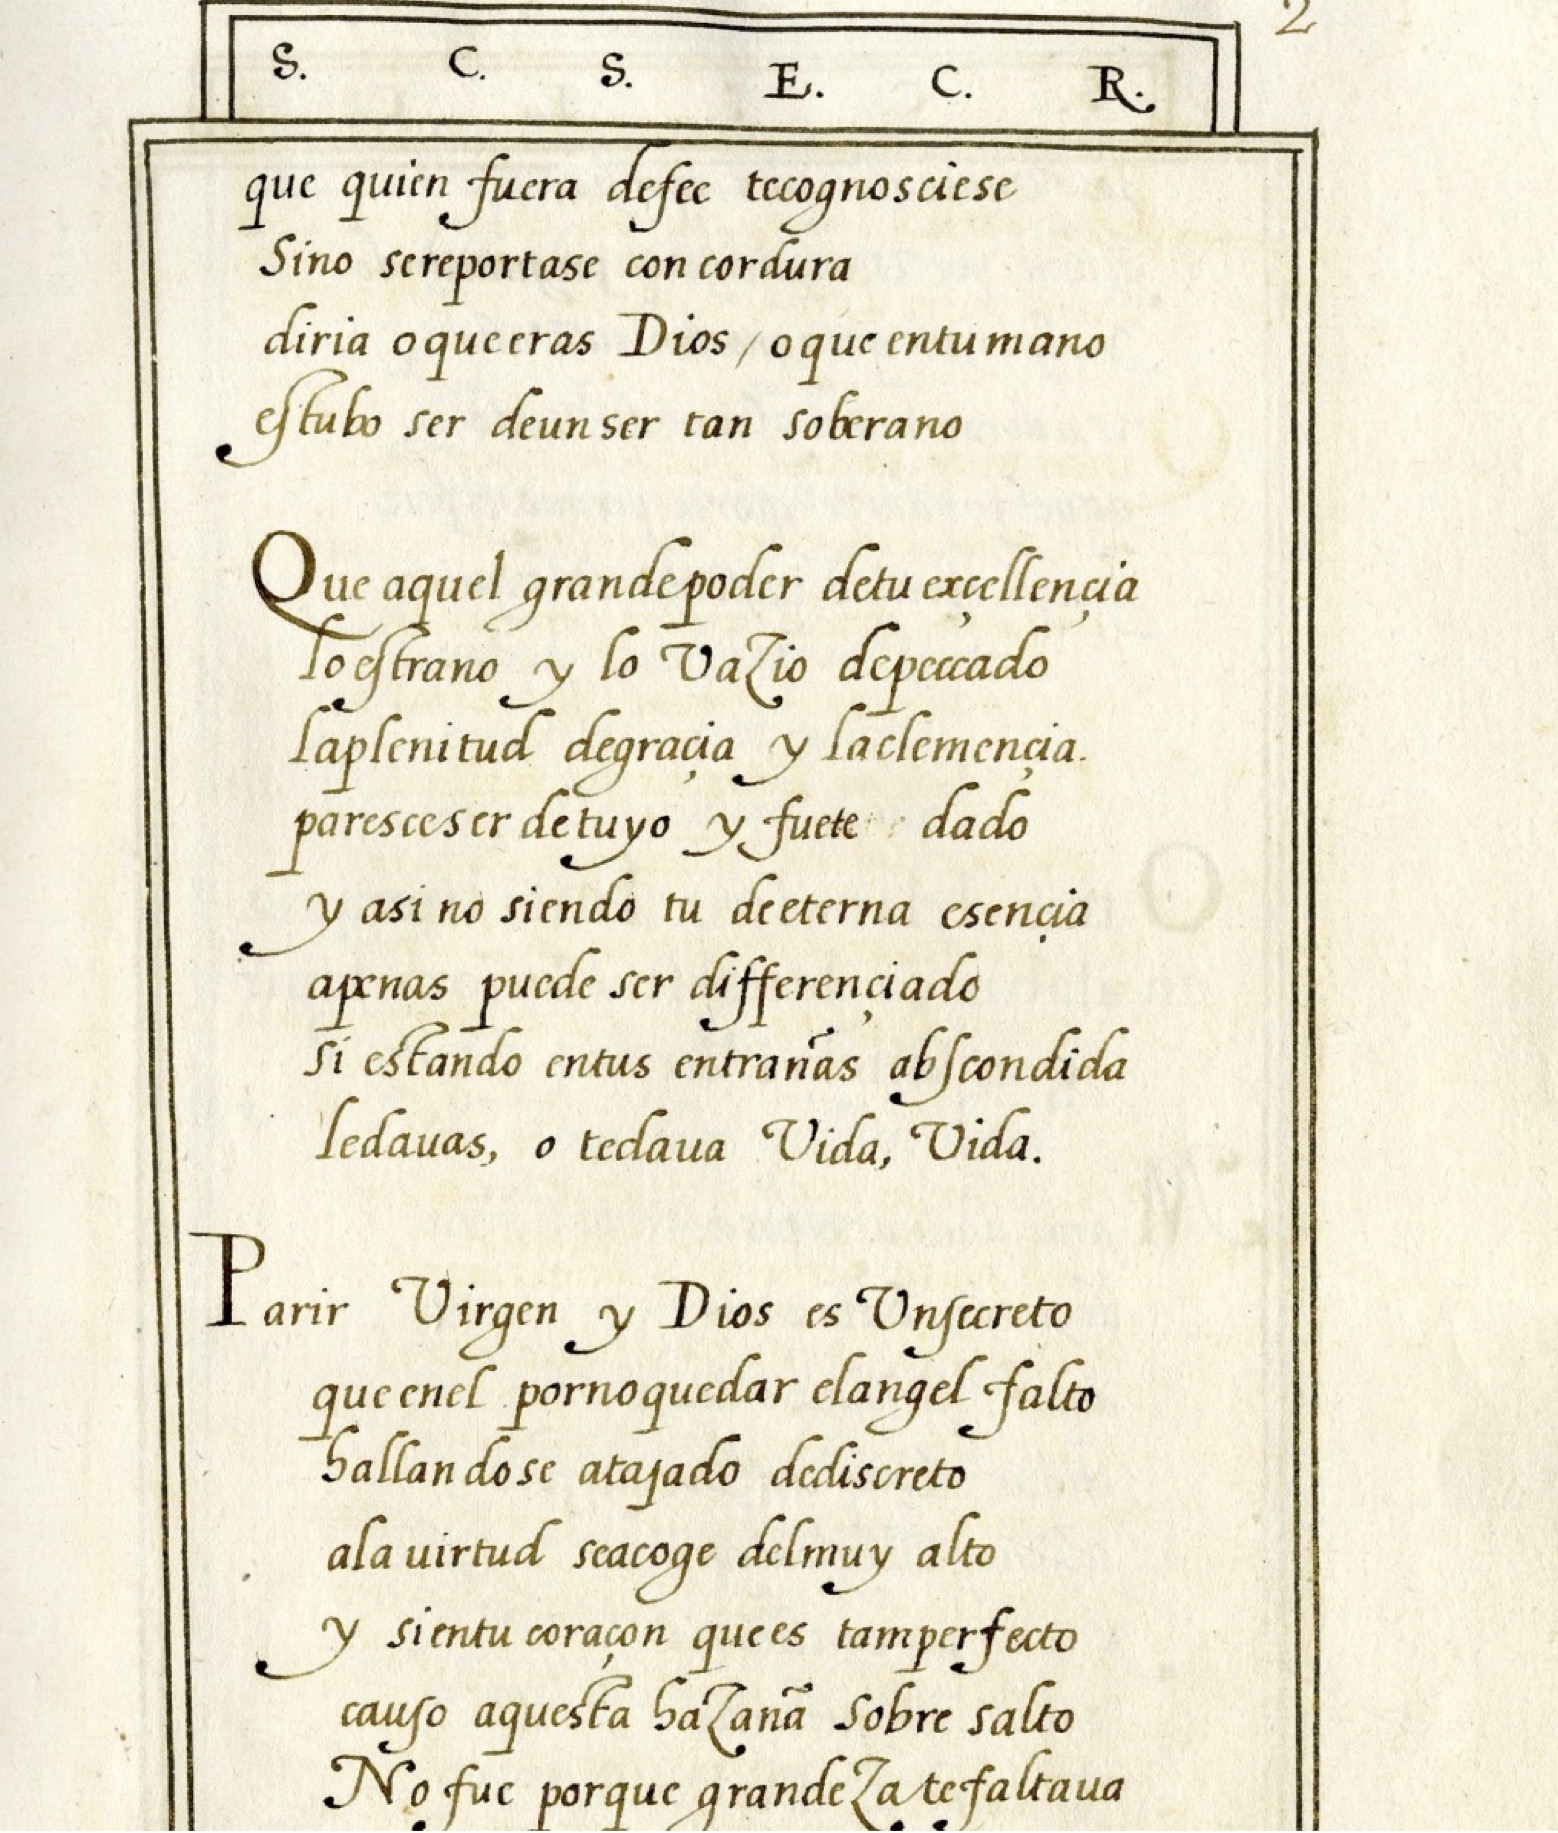 2
S. C. S. E. C. R.
que quien fuera defee tecognosciese
Sino sereportase con cordura
diria oqueeras Dios / oque entu mano
estubo ser deun ser tan soberano
Que aquel grandepoder detu exçellençia
lo estrano y lo Vazio depeccado
laplenitud degraçia y laclemençia.
paresceser detuyo y fuete dado
y asi no siendo tu deeterna esençia
apenas puede ser differençiado
si estando entus entrañas abscondida
ledauas, o tedaua Vida, Vida.
Parir Virgen y Dios es Unsecreto
queenel pornoquedar elangel falto
hallandose atajado dediscreto
ala uirtud seacoge delmuy alto
y sientu coraçon quees tamperfecto
causo aquesta hazaña sobre salto
No fue porque grandeza tefaltaua